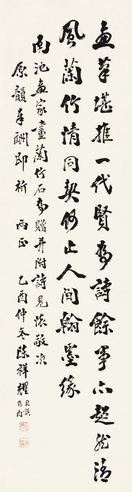 畫筆堪推一代賢為詩餘事亦超然清
風蘭竹情同契何止人間翰墨緣
雨池畫家畫蘭竹石為贈并附詩見懷敬次
原韻奉酬即祈 兩正
乙酉仲冬陳祥耀